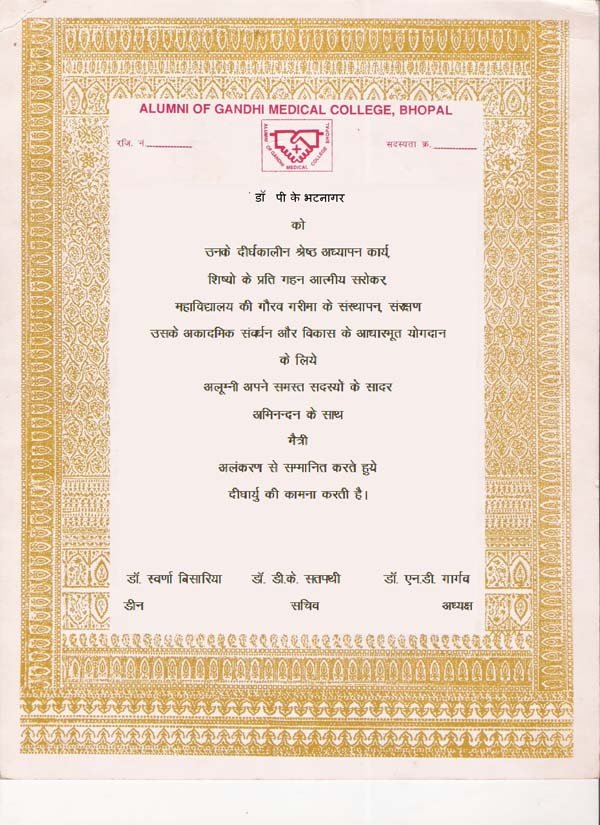 ALUMNI OF GANDHI MEDICAL COLLEGE, BHOPAL
रजि. नं.
ALUMNI OF GANDHI MEDICAL COLLEGE BHOPAL
सदस्यता क्र.
डॉ पी के भटनागर
को
उनके दीर्घकालीन श्रेष्ठ अध्यापन कार्य,
शिष्यो के प्रति गहन आत्मीय सरोकर,
महाविद्यालय की गौरव गरीमा के संस्थापन, संरक्षण
उसके अकादमिक संवर्धन और विकास के आधारमूत योगदान
के लिये
अलूम्नी अपने समस्त सदस्यों के सादर
अमिनन्दन के साथ
मैत्री
अलंकरण से सम्मानित करते हुये
दीघार्यु की कामना करती है।
डॉ. स्वर्णा बिसारिया डॉ. डी.के. सतपथी डॉ. एन.डी. गार्गव
डीन सचिव अध्यक्ष